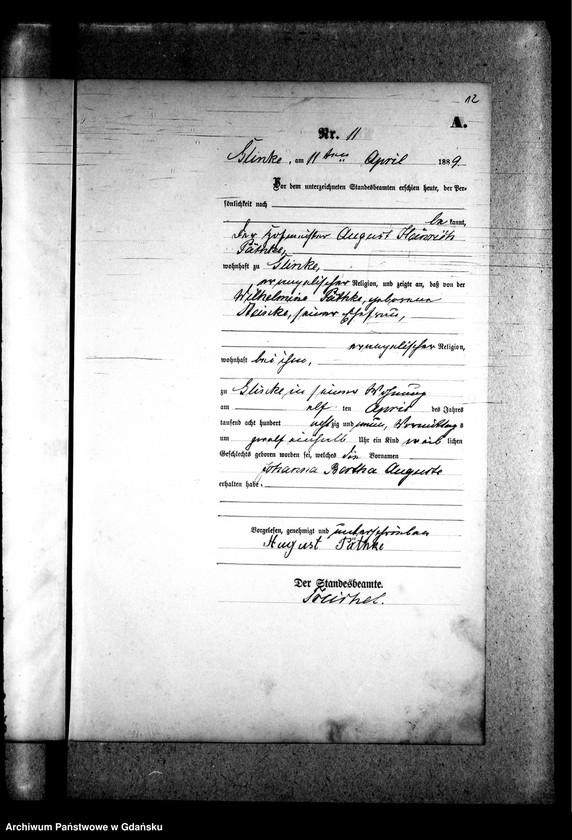 12
A.
Nr. 11
Glinke, am 11ten April 1889.
Vor dem unterzeichneten Standesbeamten erschien heute, der Per-
sönlichkeit nach
be kannt,
der Hofmeister August Heinrich
Päthke,
wohnhaft zu Glinke,
evangelischer Religion, und zeigte an, daß von der
Wilhelmine Päthke, geborenen
seiner Ehefrau,
evangelischer Religion,
wohnhaft bei ihm,
zu Glinke, in seiner Wohnung
am elf ten April des Jahres
tausend acht hundert achtzig und neun, Vormittags
um zwölf einhalb Uhr ein Kind weib lichen
Geschlechts geboren worden sei, welches die Vornamen
Johanna Bertha Auguste
erhalten habe.
Vorgelesen, genehmigt und unterschrieben
August Päthke
Der Standesbeamte.
Archiwum Państwowe w Gdańsku